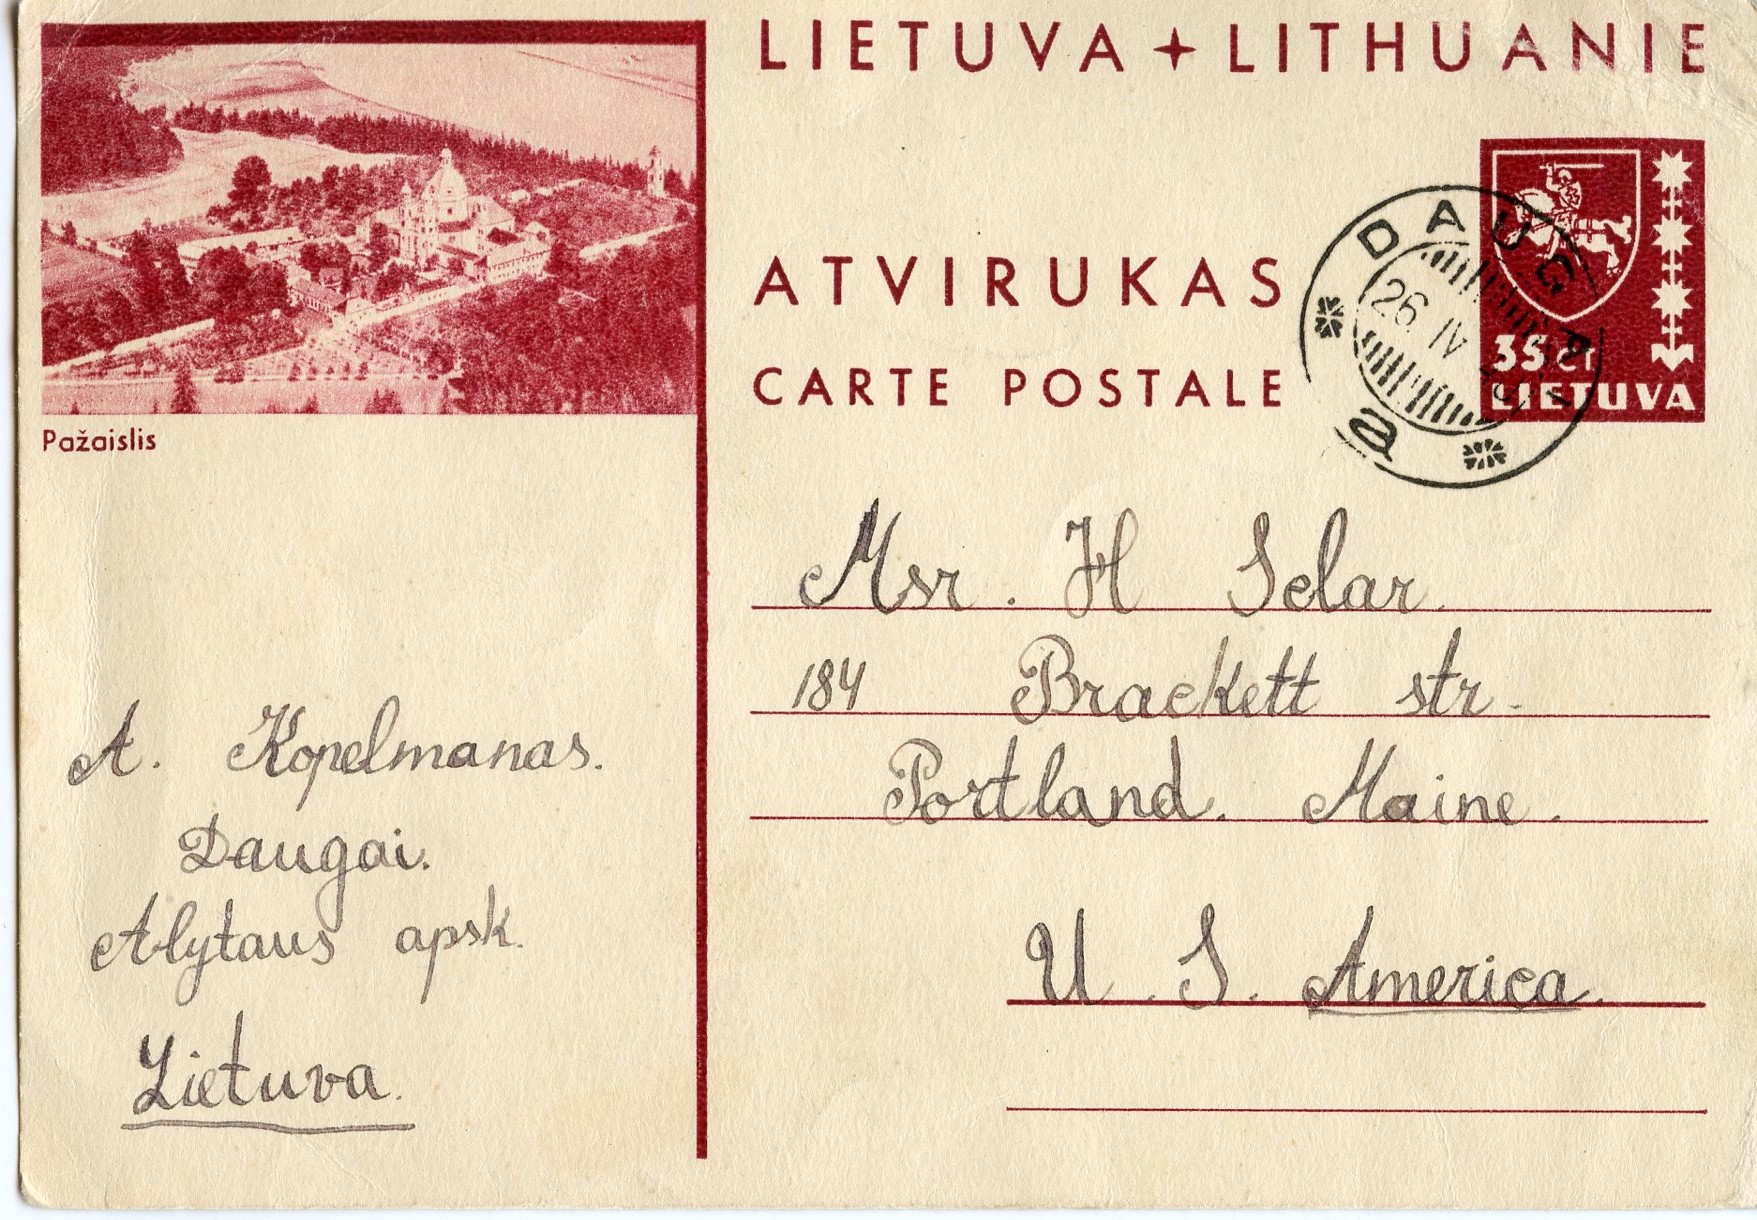 LIETUVA + LITHUANIE
Pažaislis
ATVIRUKAS
CARTE POSTALE
35 CT
LIETUVA
DAUGAI
26 IV
a
Msr. H Selar.
184 Brackett str.
Portland. Maine.
U. S. America.
A. Kopelmanas.
Daugai.
Alytaus apsk.
Lietuva.